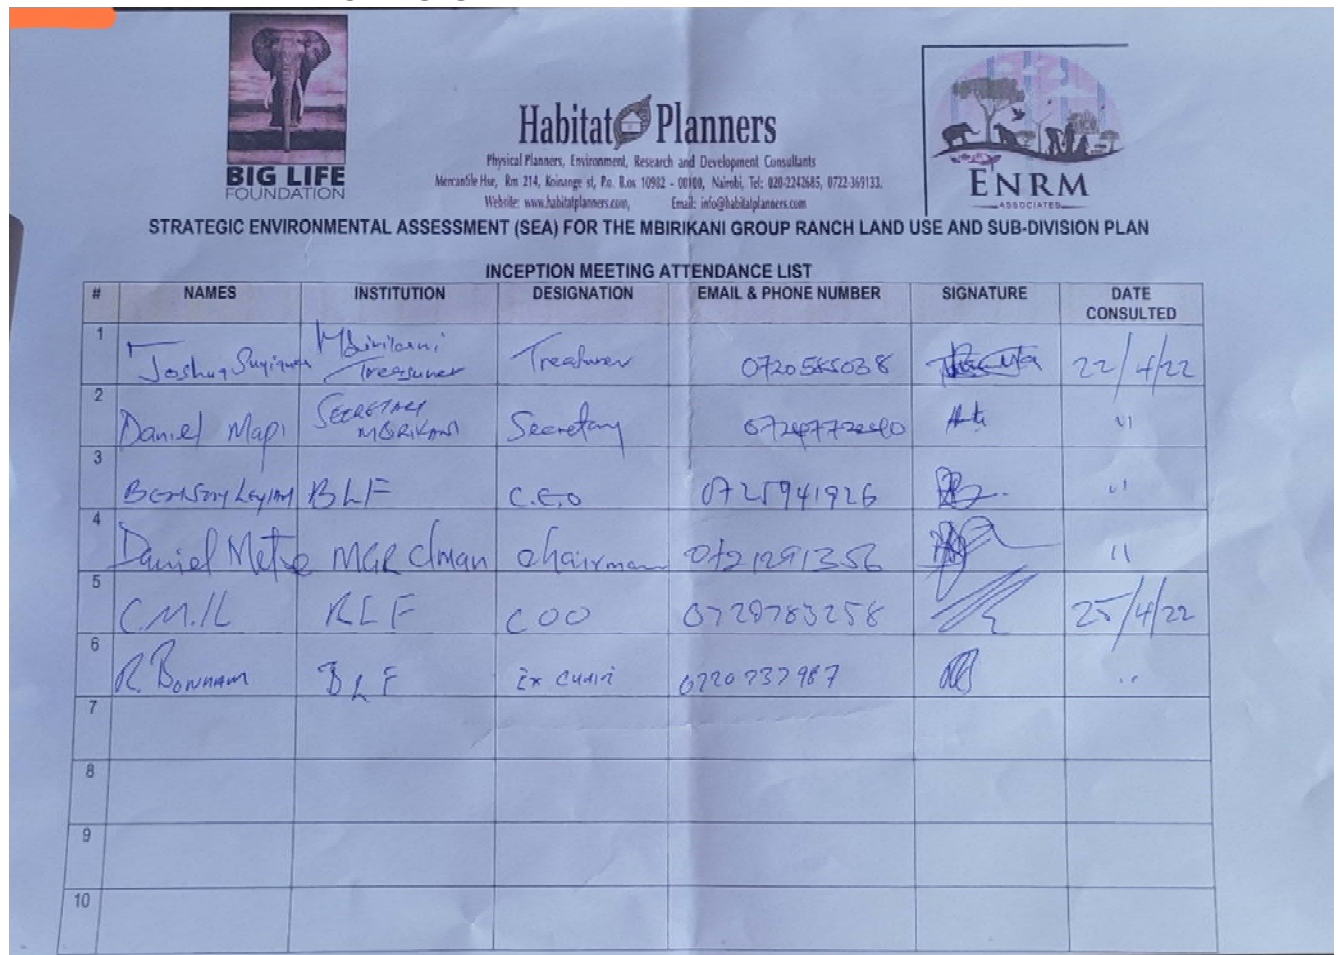 BIG LIFE
FOUNDATION
Habitat Planners
Physical Planners, Environment, Research and Development Consultants
Mercantile Hse, Rm 214, Koinange st, P.o. Box 10982 - 00100, Nairobi, Tel: 020-2242685, 0722-369133.
Website: www.habitatplanners.com, Email: info@habitatplanners.com
ENRM
ASSOCIATES
STRATEGIC ENVIRONMENTAL ASSESSMENT (SEA) FOR THE MBIRIKANI GROUP RANCH LAND USE AND SUB-DIVISION PLAN
INCEPTION MEETING ATTENDANCE LIST
# NAMES INSTITUTION DESIGNATION EMAIL & PHONE NUMBER SIGNATURE DATE CONSULTED
1 Joshua Mbirikani Treasurer Treasurer 22/4/22
2 Daniel Mapi SECRETARY MBIRIKANI Secretary 11
3 BLF C.E.O 0725941926 11
4 Daniel MGR Cman Chairman 0721291356 11
5 COO 0720783258 25/4/22
6 R. BONHAM BLF Ex 0720737987 ..
7
8
9
10